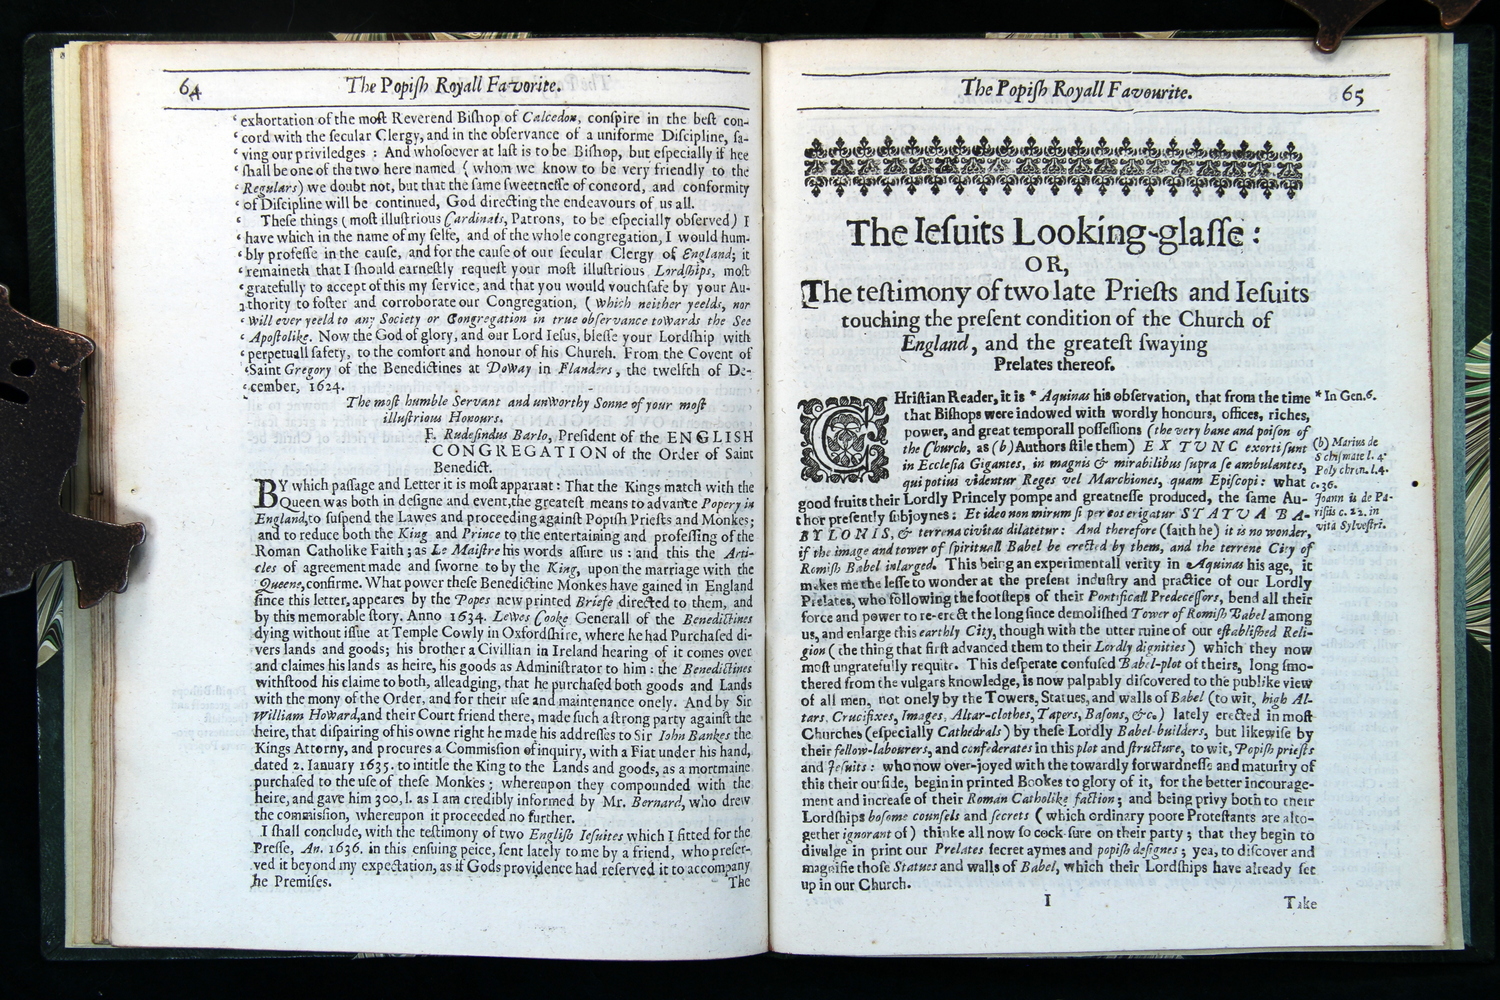 64
The Popiſh Royall Favorite.
‘ exhortation of the moſt Reverend Biſhop of Calcedon, conſpire in the beſt con-
‘ cord with the ſecular Clergy, and in the obſervance of a uniforme Diſcipline, ſa-
‘ ving our priviledges : And whoſoever at laſt is to be Biſhop, but eſpecially if hee
‘ ſhall be one of the two here named ( whom we know to be very friendly to the
‘ Regulars) we doubt not, but that the ſame ſweetneſſe of concord, and conformity
‘ of Diſcipline will be continued, God directing the endeavours of us all.
Theſe things ( moſt illuſtrious Cardinals, Patrons, to be eſpecially obſerved ) I
‘ have which in the name of my ſelfe, and of the whole congregation, I would hum-
‘ bly profeſſe in the cauſe, and for the cauſe of our ſecular Clergy of England; it
‘ remaineth that I ſhould earneſtly requeſt your moſt illuſtrious Lordſhips, moſt
‘ gratefully to accept of this my ſervice, and that you would vouchſafe by your Au-
thority to foſter and corroborate our Congregation, ( which neither yeelds, nor
‘ will ever yeeld to any Society or Congregation in true obſervance towards the See
‘ Apoſtolike. Now the God of glory, and our Lord Ieſus, bleſſe your Lordſhip with
‘ perpetuall ſafety, to the comfort and honour of his Church. From the Covent of
‘ Saint Gregory of the Benedictines at Doway in Flanders, the twelfth of De-
‘ cember, 1624.
The moſt humble Servant and unworthy Sonne of your moſt
illuſtrious Honours.
F. Rudeſindus Barlo, Preſident of the ENGLISH
CONGREGATION of the Order of Saint
Benedict.
BY which paſſage and Letter it is moſt apparant : That the Kings match with the
Queen was both in deſigne and event, the greateſt means to advance Popery in
England, to ſuſpend the Lawes and proceeding againſt Popiſh Prieſts and Monkes;
and to reduce both the King and Prince to the entertaining and profeſſing of the
Roman Catholike Faith ; as Le Maiſtre his words aſſure us : and this the Arti-
cles of agreement made and ſworne to by the King, upon the marriage with the
Queene, confirme. What power theſe Benedictine Monkes have gained in England
ſince this letter, appeares by the Popes new printed Briefe directed to them, and
by this memorable ſtory. Anno 1634. Lewes Cooke Generall of the Benedictines
dying without iſſue at Temple Cowly in Oxfordſhire, where he had Purchaſed di-
vers lands and goods; his brother a Civillian in Ireland hearing of it comes over
and claimes his lands as heire, his goods as Adminiſtrator to him : the Benedictines
withſtood his claime to both, alleadging, that he purchaſed both goods and Lands
with the mony of the Order, and for their uſe and maintenance onely. And by Sir
William Howard, and their Court friend there, made ſuch a ſtrong party againſt the
heire, that diſpairing of his owne right he made his addreſſes to Sir Iohn Bankes the
Kings Attorny, and procures a Commiſſion of inquiry, with a Fiat under his hand,
dated 2. Ianuary 1635. to intitle the King to the Lands and goods, as a mortmaine
purchaſed to the uſe of theſe Monkes ; whereupon they compounded with the
heire, and gave him 300, l. as I am credibly informed by Mr. Bernard, who drew
the commiſſion, whereupon it proceeded no further.
I ſhall conclude, with the teſtimony of two Engliſh Ieſuites which I fitted for the
Preſſe, An. 1636. in this enſuing peice, ſent lately to me by a friend, who preſer-
ved it beyond my expectation, as if Gods providence had reſerved it to accompany
he Premiſes.
The
The Popiſh Royall Favourite.
65
The Ieſuits Looking-glaſſe :
OR,
The teſtimony of two late Prieſts and Ieſuits
touching the preſent condition of the Church of
England, and the greateſt ſwaying
Prelates thereof.
CHriſtian Reader, it is * Aquinas his obſervation, that from the time
that Biſhops were indowed with wordly honours, offices, riches,
power, and great temporall poſſeſſions (the very bane and poiſon of
the Church, as (b) Authors ſtile them) EX TUNC exorti ſunt
in Eccleſia Gigantes, in magnis & mirabilibus ſupra ſe ambulantes,
qui potius videntur Reges vel Marchiones, quam Epiſcopi: what
good fruits their Lordly Princely pompe and greatneſſe produced, the ſame Au-
thor preſently ſubjoynes : Et ideo non mirum ſi per eos erigatur STATUA BA-
BYLONIS, & terrena civitas dilatetur : And therefore (faith he) it is no wonder,
if the image and tower of ſpirituall Babel be erected by them, and the terrene City of
Romiſh Babel inlarged. This being an experimentall verity in Aquinas his age, it
makes me the leſſe to wonder at the preſent induſtry and practice of our Lordly
Prelates, who following the footſteps of their Pontificall Predeceſſors, bend all their
force and power to re-erect the long ſince demoliſhed Tower of Romiſh Babel among
us, and enlarge this earthly City, though with the utter ruine of our eſtabliſhed Reli-
gion ( the thing that firſt advanced them to their Lordly dignities ) which they now
moſt ungratefully requite. This deſperate confuſed Babel-plot of theirs, long ſmo-
thered from the vulgars knowledge, is now palpably diſcovered to the publike view
of all men, not onely by the Towers, Statues, and walls of Babel (to wit, high Al-
tars, Crucifixes, Images, Altar-clothes, Tapers, Baſons, &c.) lately erected in moſt
Churches (eſpecially Cathedrals ) by theſe Lordly Babel-builders, but likewiſe by
their fellow-labourers, and confederates in this plot and ſtructure, to wit, Popiſh prieſts
and Jeſuits : who now over-joyed with the towardly forwardneſſe and maturity of
this their outſide, begin in printed Bookes to glory of it, for the better incourage-
ment and increaſe of their Roman Catholike faction ; and being privy both to their
Lordſhips boſome counſels and ſecrets ( which ordinary poore Proteſtants are alto-
gether ignorant of ) thinke all now ſo cock-ſure on their party ; that they begin to
divulge in print our Prelates ſecret aymes and popiſh deſignes ; yea, to diſcover and
magnifie thoſe Statues and walls of Babel, which their Lordſhips have already ſet
up in our Church.
* In Gen. 6.
(b) Marius de
Schiſmate l. 4.
Polychron. l. 4.
c. 36.
Joannis de Pa-
riſiis c. 22. in
vita Sylveſtri.
I
Take